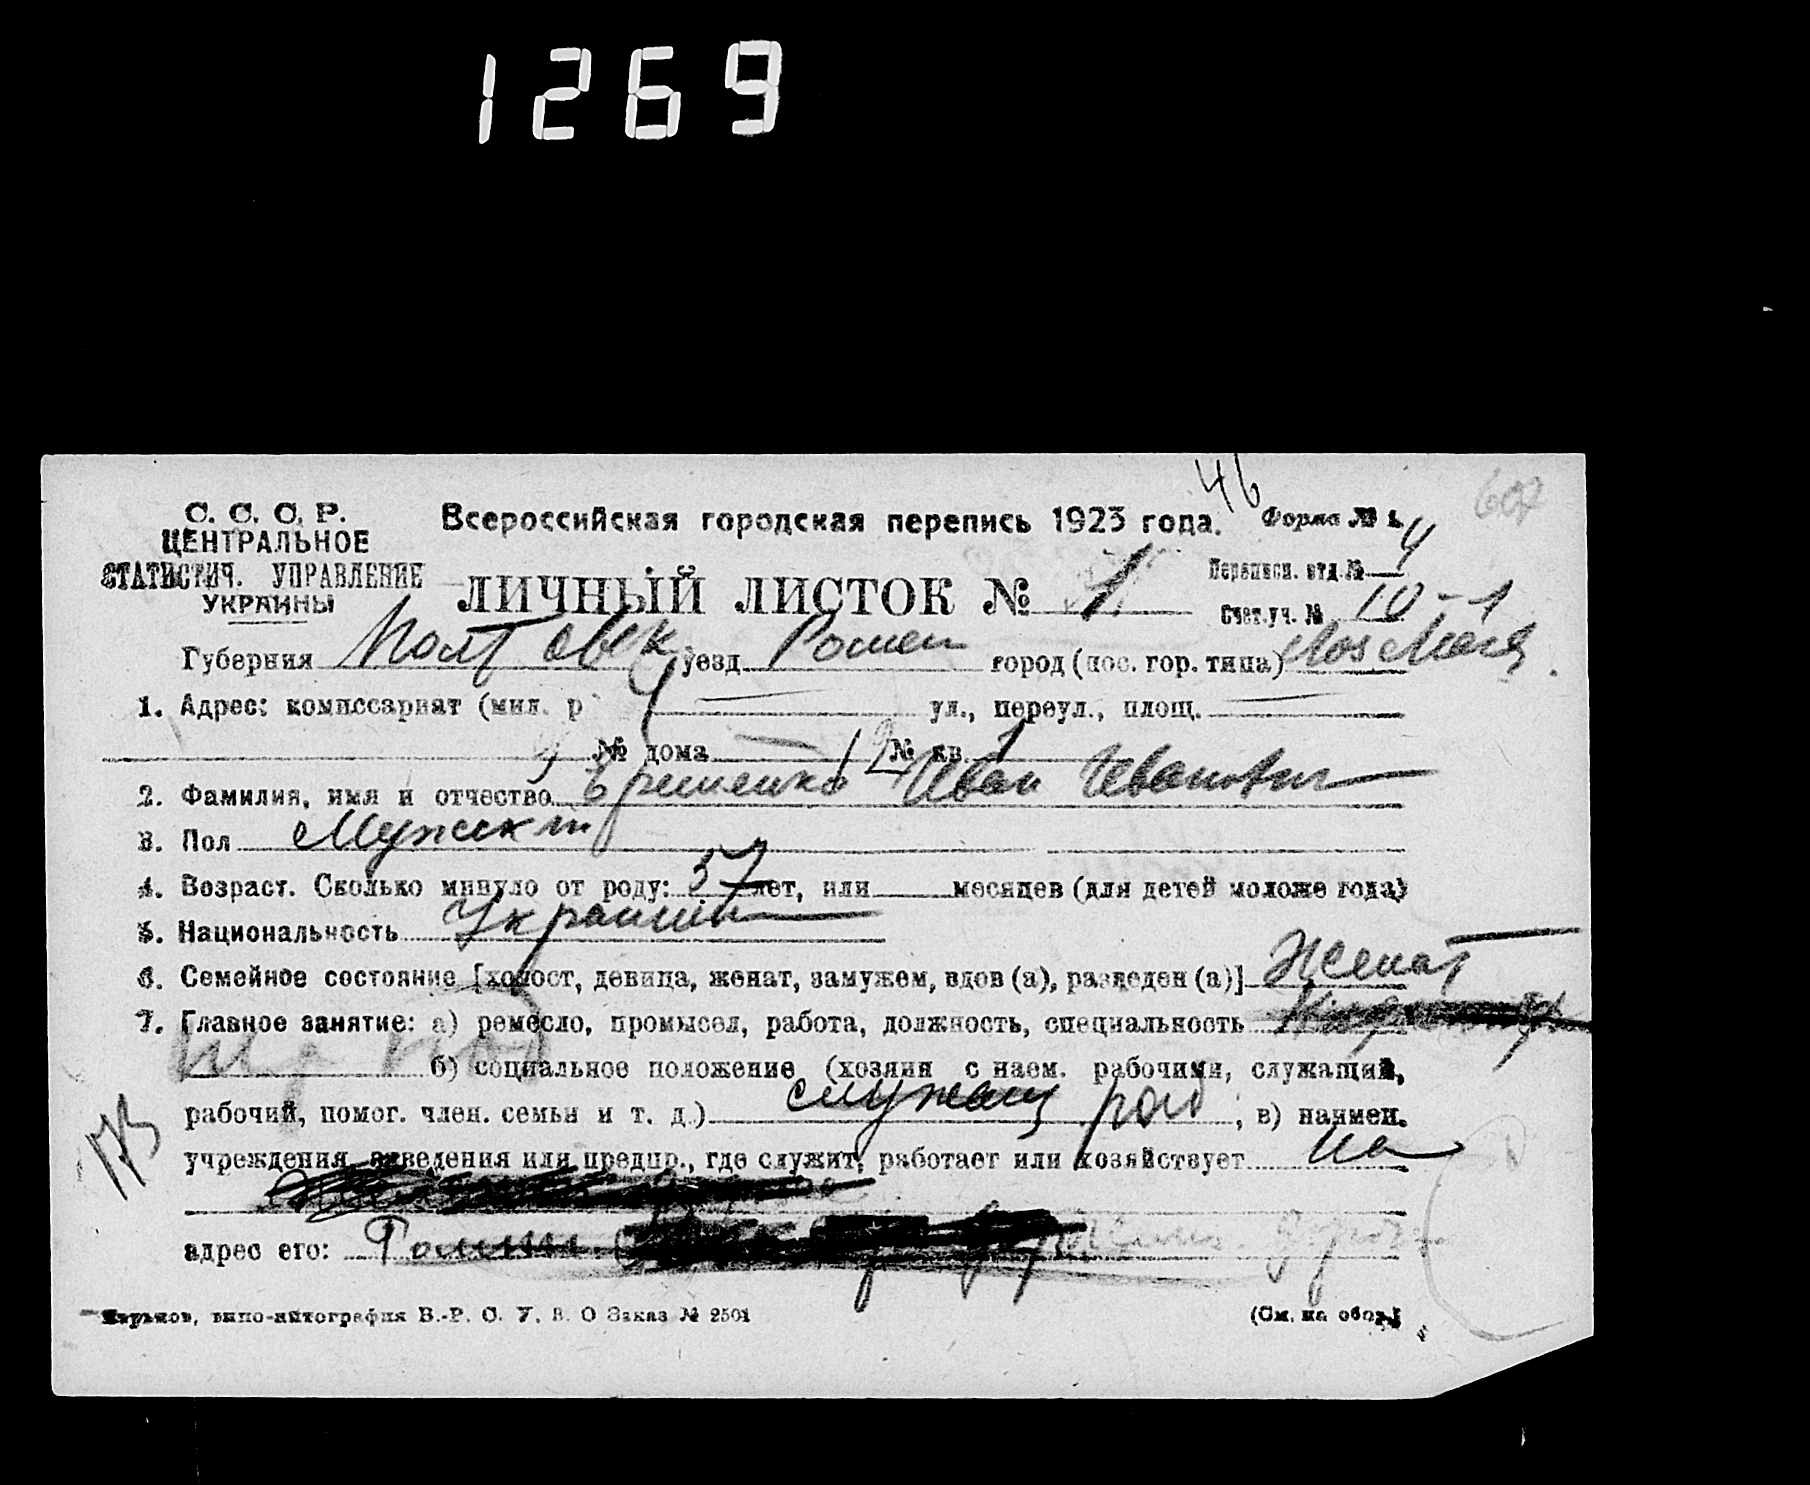 1269
46
С. С. С. Р.
ЦЕНТРАЛЬНОЕ
СТАТИСТИЧ. УПРАВЛЕНИЕ
УКРАИНЫ
Всероссийская городская перепись 1923 года.
Форма № 1.
607
ЛИЧНЫЙ ЛИСТОК № 1
Переписн. отд. № 4
Счет. уч. № 10-1
Губерния Полтавск уезд Ромен город (пос. гор. типа)
1. Адрес: комиссариат (мил. р ул., переул., площ.
№ дома № кв. 1
2. Фамилия, имя и отчество Иван Иванович
3. Пол Мужск
4. Возраст. Сколько минуло от роду: 57 лет, или месяцев (для детей моложе года)
5. Национальность Украинец
6. Семейное состояние [холост, девица, женат, замужем, вдов (а), разведен (а)] Женат
7. Главное занятие: а) ремесло, промысел, работа, должность, специальность
б) социальное положение (хозяин с наем. рабочими, служащий,
рабочий, помог. член. семьи и т. д.) служащ ; в) наимен.
учреждения, заведения или предпр., где служит, работает или хозяйствует на
адрес его: Ромны
Харьков, типо-литография В.-Р. С. У. В. О Заказ № 2501
(См. на обор.)